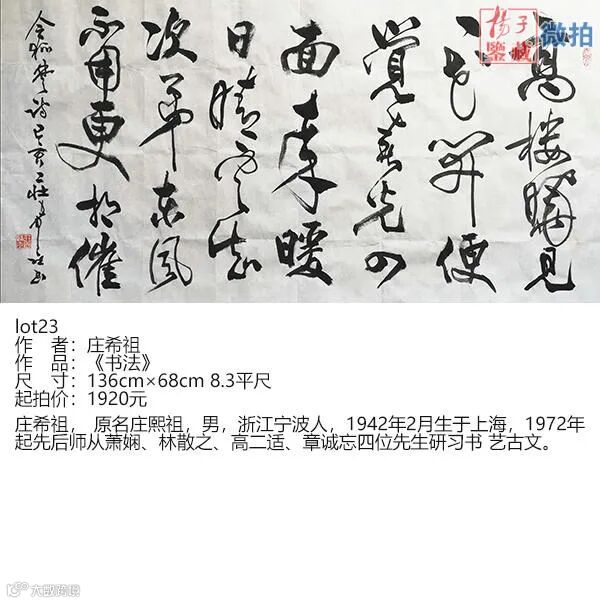 揚子鑒藏 微拍
高樓曉見
一花開便
覺春光四
面來暖
日晴雲知
次第東風
不用更相催
令狐楚詩己亥
lot23
作 者：庄希祖
作 品：《书法》
尺 寸：136cm×68cm 8.3平尺
起拍价：1920元
庄希祖， 原名庄熙祖，男，浙江宁波人，1942年2月生于上海，1972年
起先后师从萧娴、林散之、高二适、章诚忘四位先生研习书 艺古文。
大数跨境